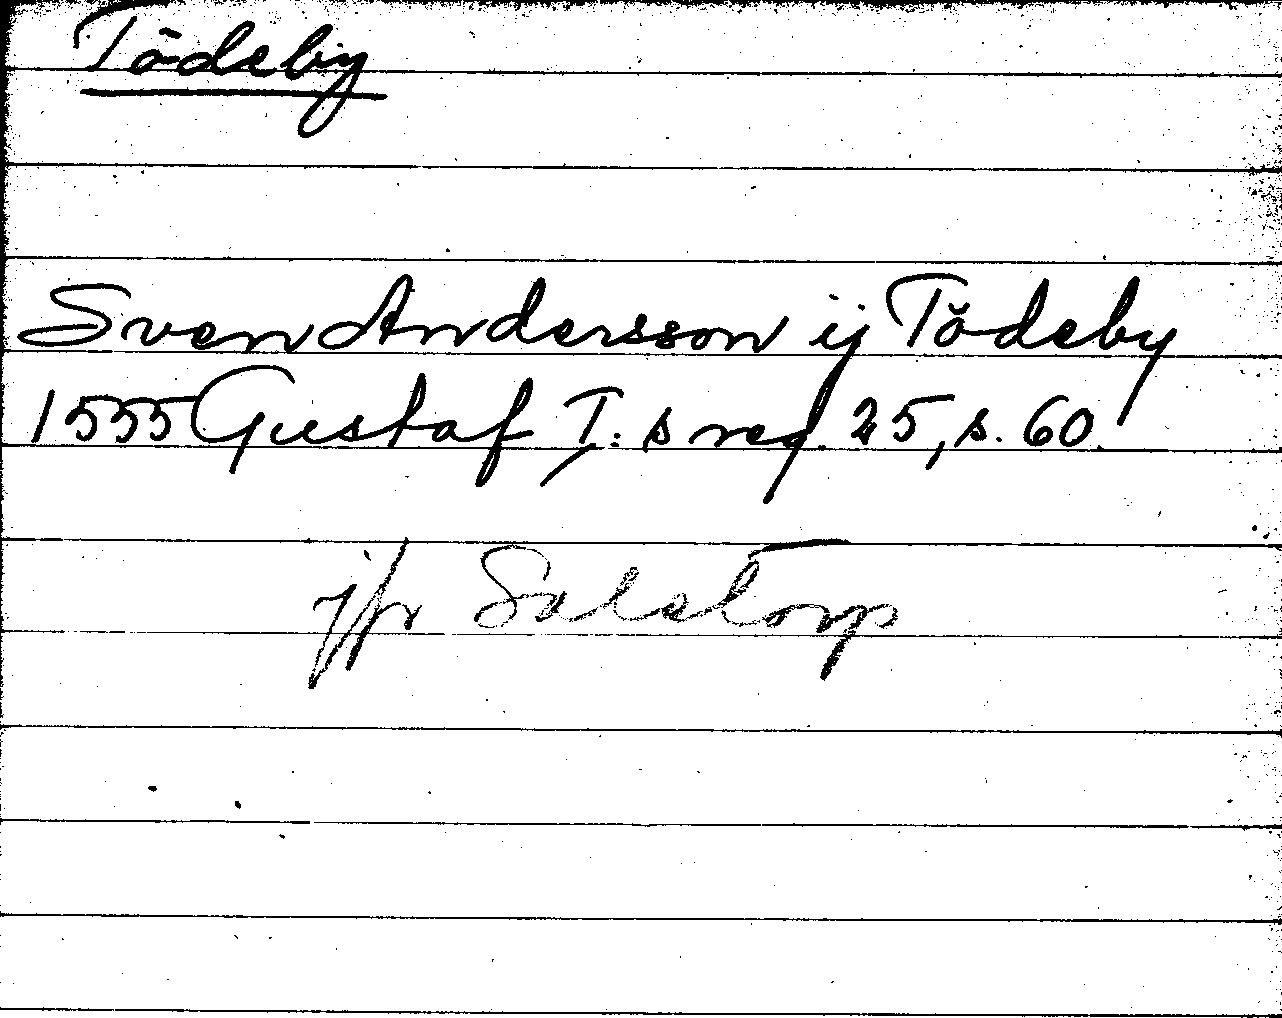 Tödeby
Sven Andersson ij Tödeby
1555 Gustaf I:s reg. 25, s. 60.
jfr Salstorp